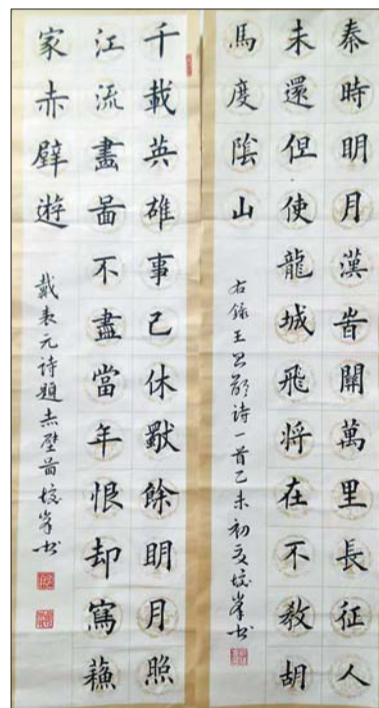 秦時明月漢旹關萬里長征人
未還但使龍城飛将在不教胡
馬度陰山
右錄王昌齡詩一首乙未初夏峯书
千載英雄事已休獸餘明月照
江流畫啚不盡當年恨却寫蘓
家赤壁遊
戴表元詩題赤壁啚峯书